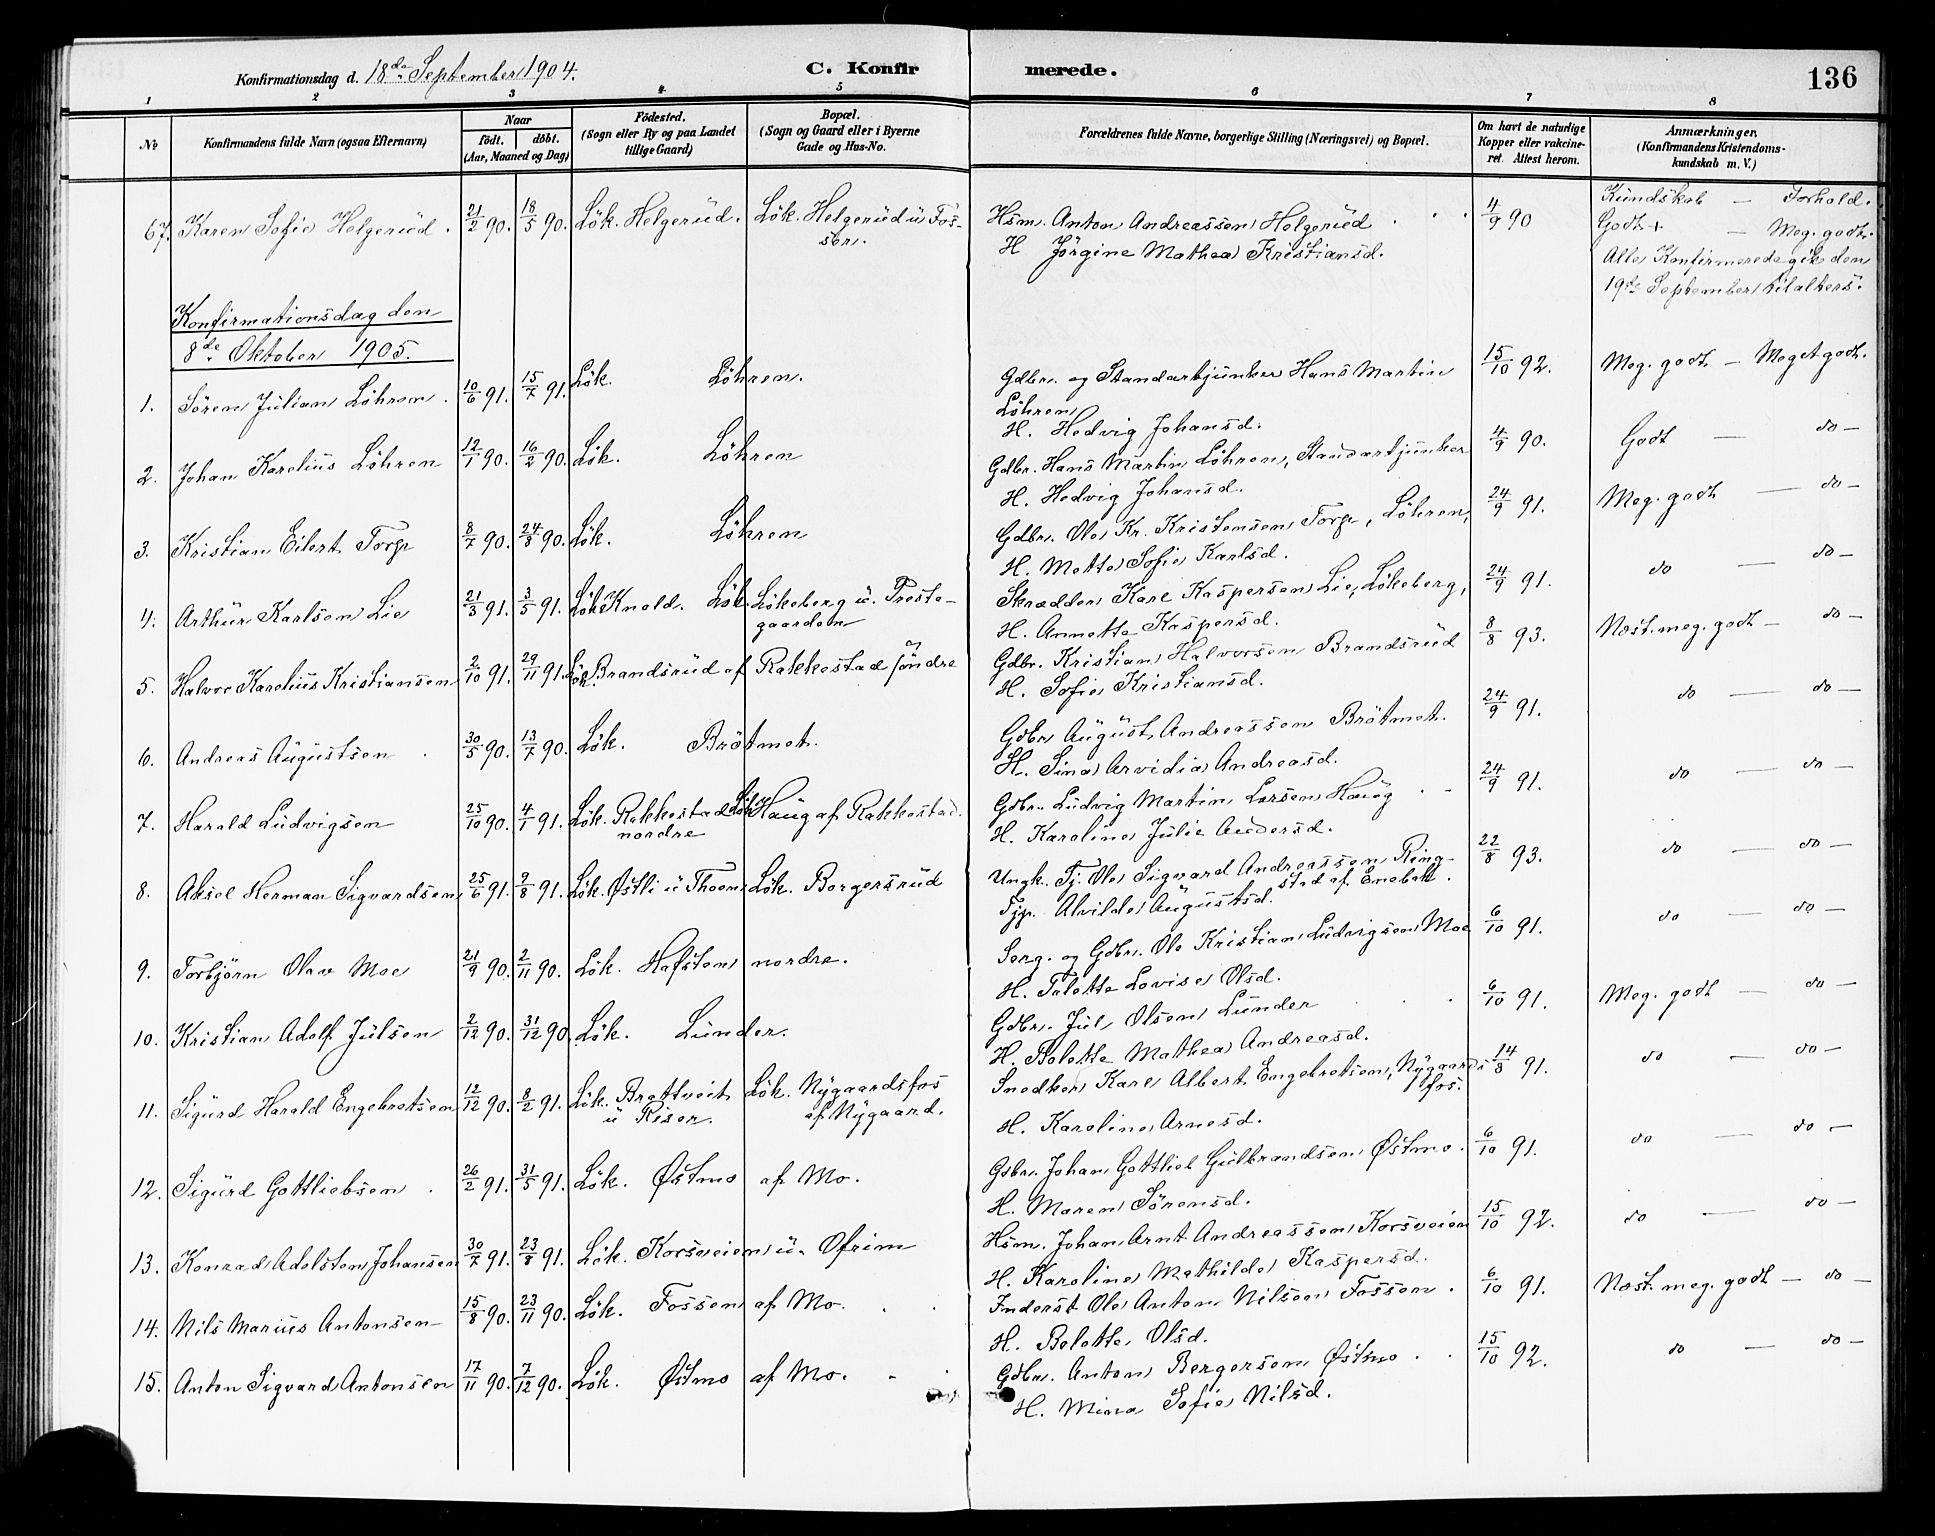 Konfirmationsdag d. 18de September 1904.
C. Konfirmerede.
136
1 2 3 4 5 6 7 8
No
Konfirmandens fulde Navn (ogsaa Efternavn)
Naar
födt. döbt.
(Aar, Maaned og Dag)
Födested.
(Sogn eller By og paa Landet
tillige Gaard)
Bopæl.
(Sogn og Gaard eller i Byerne
Gade og Hus-No.
Forældrenes fulde Navne, borgerlige Stilling (Næringsvei) og Bopæl.
Om havt de naturlige
Kopper eller vakcine-
ret. Attest herom.
Anmærkninger.
(Konfirmandens Kristendoms-
kundskab m. V.)
67. Karen Sofie Helgerud. 21/2 90. 18/5 90. Lök. Helgerud. Lök. Helgerud u Fos-
sen.
Hsm. Anton Andreassen Helgerud . . . 4/9 90
H Jörgine Mathea Kristiansd.
Kundskab — Forhold.
Godt + — Meg. godt.
Alle Konfirmerede gik den
19de September til alters.
Konfirmationsdag den
8de Oktober 1905.
1. Sören Julian Löhren. 10/6 91. 15/7 91. Lök. Löhren. Gdbr. og Standartjunker Hans Martin 15/10 92. Meg. godt — Meget godt.
Löhren
H. Hedvig Johansd.
2. Johan Karelius Löhren 12/1 90. 16/2 90. Lök. Löhren Gdbr. Hans Martin Löhren, Standartjunker 4/9 90. Godt — do —
H. Hedvig Johansd.
3. Kristian Eilert Torp 8/7 90. 24/8 90. Lök. Löhren Gdbr. Ole Kr. Kristensen Torp, Löhren, 24/9 91. Meg. godt — do —
H. Mette Sofie Karlsd.
4. Arthur Karlsen Lie 21/3 91. 3/5 91. Lök. Knold. Lök. Lökeberg u. Preste-
gaarden
Skrædder Karl Kaspersen Lie, Lökeberg, 24/9 91. do — do —
H. Annette Kaspersd.
5. Halvor Karelius Kristiansen 2/10 91. 29/11 91. Lök. Brandsrud af Rakkestad söndre Gdbr. Kristian Halvorsen Brandsrud 8/8 93. Næst. meg. godt — do —
H. Sofie Kristiansd.
6. Andreas Augustsen . 30/5 90. 13/7 90. Lök. Brötmet. Gdbr. August Andreassen Brötmet. 24/9 91. do — do —
H. Sina Arvidia Andreasd.
7. Harald Ludvigsen 25/10 90. 4/1 91. Lök. Rakkestad Lök. Haug af Rakkestad.
nordre
Gdbr. Ludvig Martin Larsen Haug . - 24/9 91. do — do —
H. Karoline Julie Andersd.
8. Aksel Herman Sigvardsen 25/6 91. 9/8 91. Lök. Østli u Thoen Lök. Borgersrud Ungk. Tj. Ole Sigvard Andreassen Ring- 22/8 93. do — do —
stad af Enebak.
Tjp. Alvilde Augustsd.
9. Torbjörn Olav Moe 21/9 90. 2/11 90. Lök. Hafsten nordre. Serg. og Gdbr. Ole Kristian Ludvigsen Moe 6/10 91. do — do —
H. Talette Lovise Olsd.
10. Kristian Adolf Julsen 2/12 90. 31/12 90. Lök. Lunder. Gdbr. Jul Olsen Lunder 6/10 91. Meg. godt — do —
H. Bolette Mathea Andreasd.
11. Sigurd Harald Engebretsen 12/12 90. 8/2 91. Lök. Brattveit Lök. Nygaardsfos
u Riser. af Nygaard.
Snedker Karl Albert Engebretsen, Nygaards 14/8 91. do — do —
fos.
H. Karoline Arnesd.
12. Sigurd Gottliebsen . 26/2 91. 31/5 91. Lök. Østmo af Mo. Gdbr. Johan Gottlieb Gulbrandsen Østmo. 6/10 91. do — do —
H. Maren Sörensd.
13. Konrad Adolsten Johansen 30/7 91. 23/8 91. Lök. Korsveien u. Ofrim Hsm. Johan Arnt Andreassen Korsveien 15/10 92. do — do —
H. Karoline Mathilde Kaspersd.
14. Nils Marius Antonsen 15/8 90. 23/11 90. Lök. Fossen af Mo. . . Inderst Ole Anton Nilsen Fossen . 6/10 91. Næst. meg. godt — do —
H. Bolette Olsd.
15. Anton Sigvard Antonsen 17/11 90. 7/12 90. Lök. Østmo af Mo. - . Gdbr. Anton Bergersen Østmo . . 15/10 92. do — do —
H. Mina Sofie Nilsd.